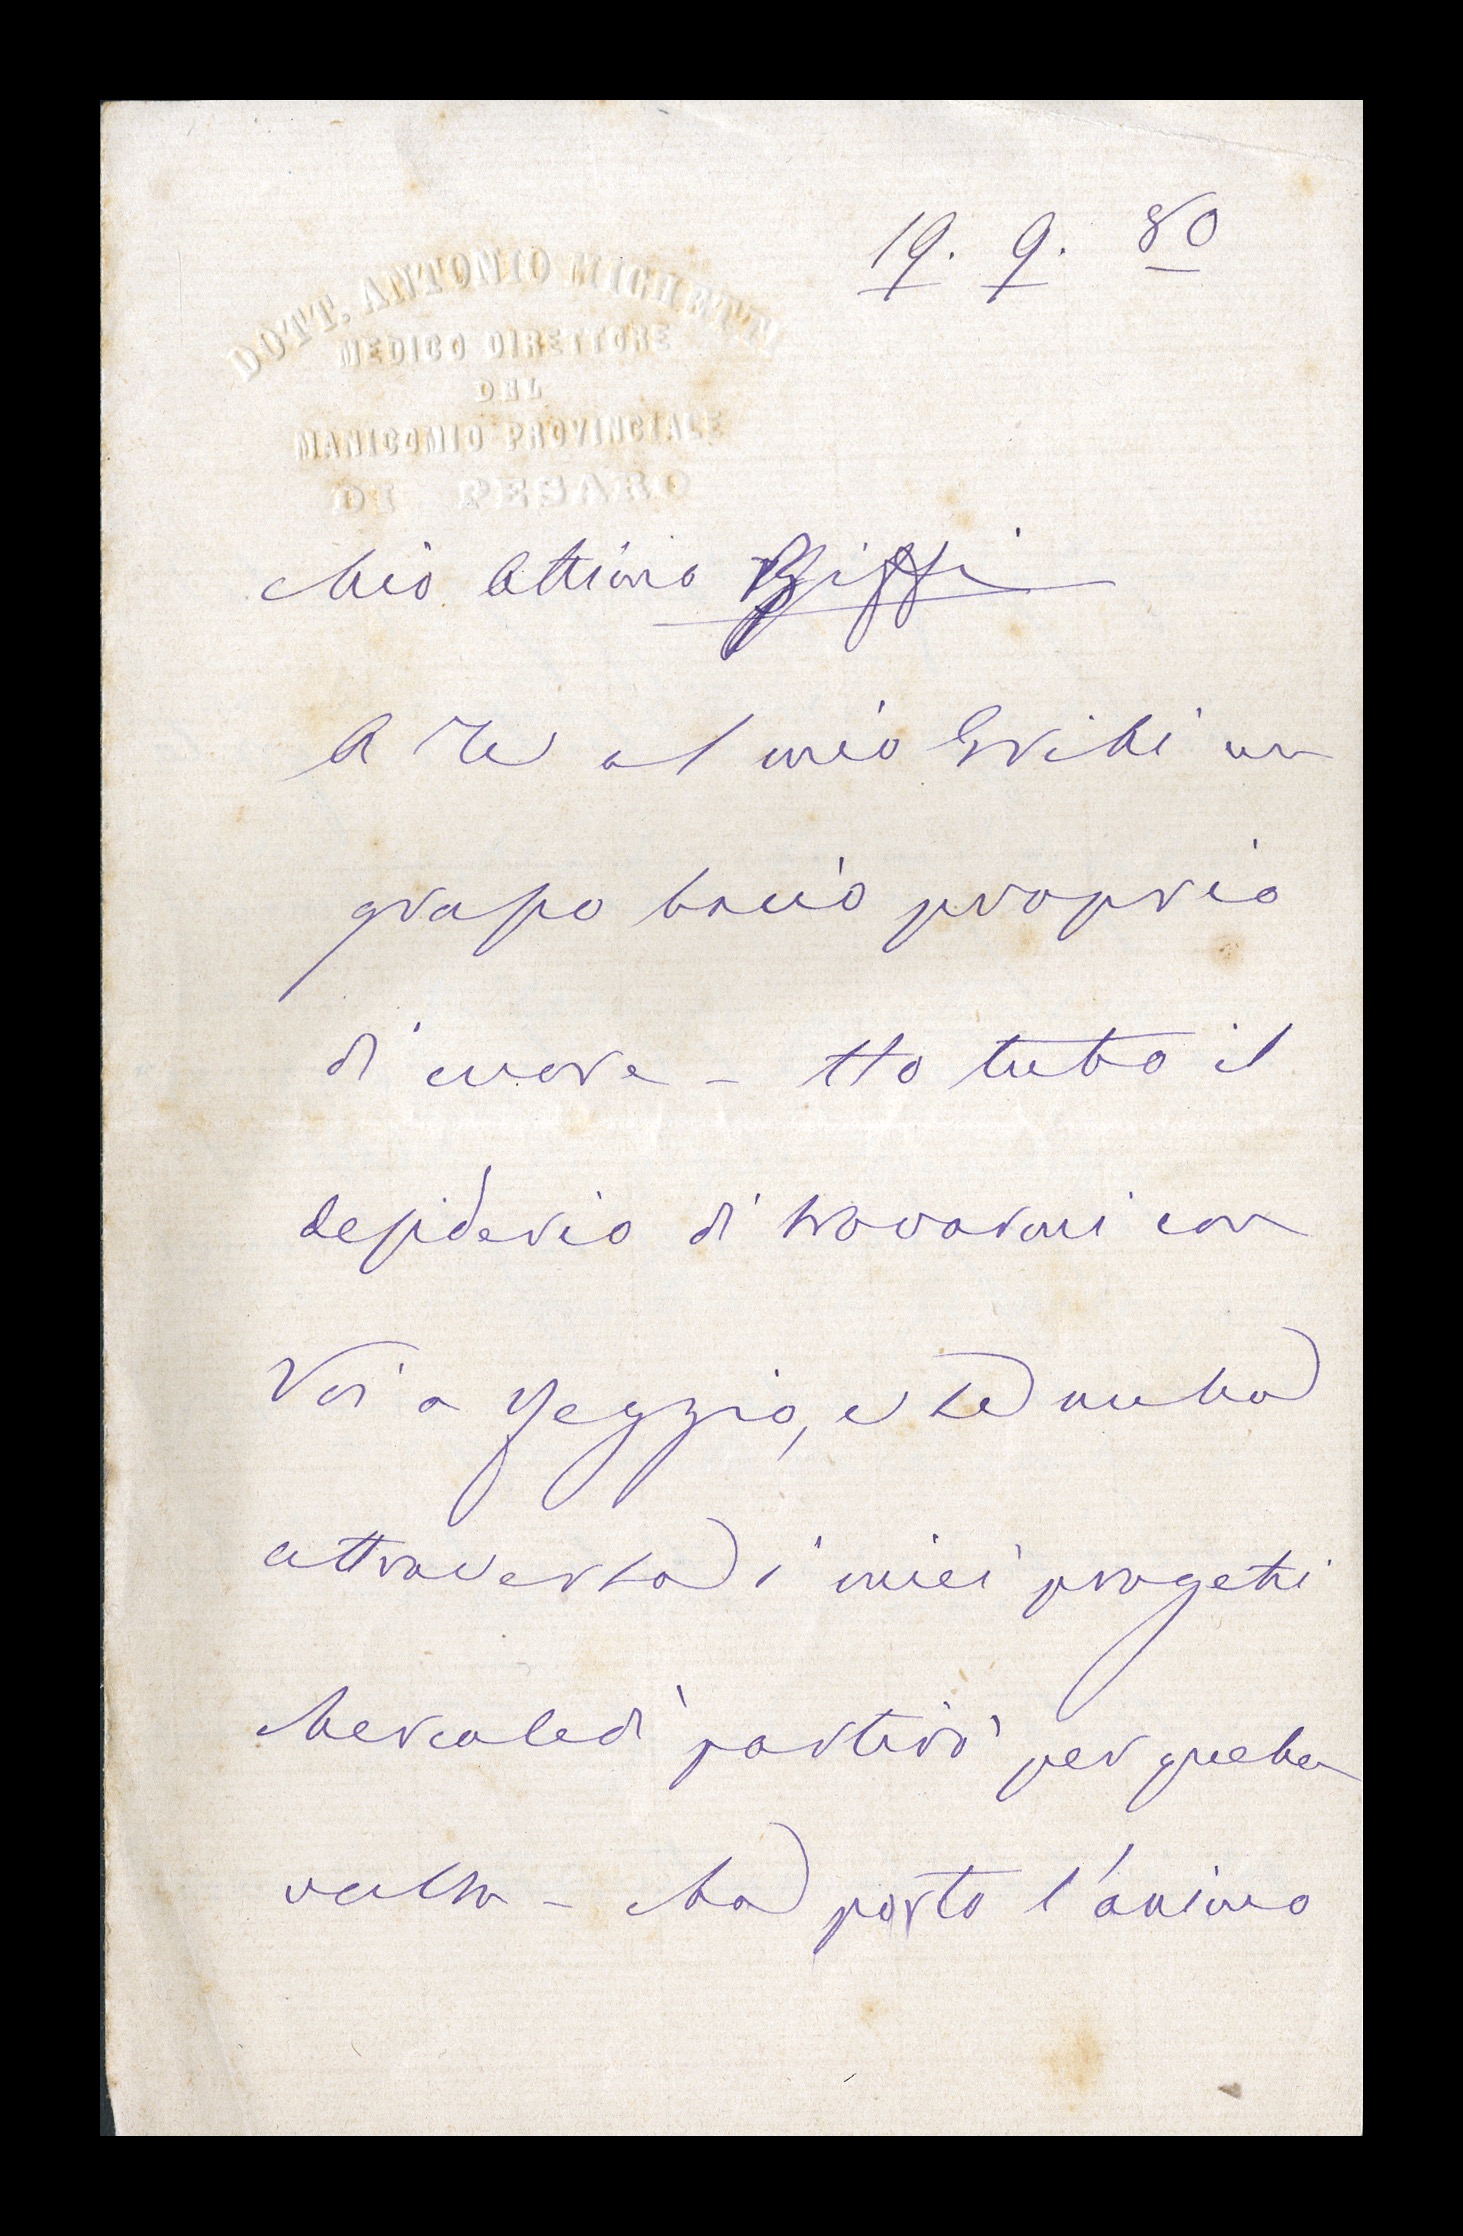 19. 9. 80
DOTT. ANTONIO MICHETTI
MEDICO DIRETTORE
DEL
MANICOMIO PROVINCIALE
DI PESARO
Mio Ottimo Biffi
A Te al mio Grilli un
grosso bacio proprio
di cuore - Ho tutto il
desiderio di trovarmi con
Voi a Reggio, e se nulla
attraversa i miei progetti
Mercoledì partirò per quella
volta - Ma porto l'animo